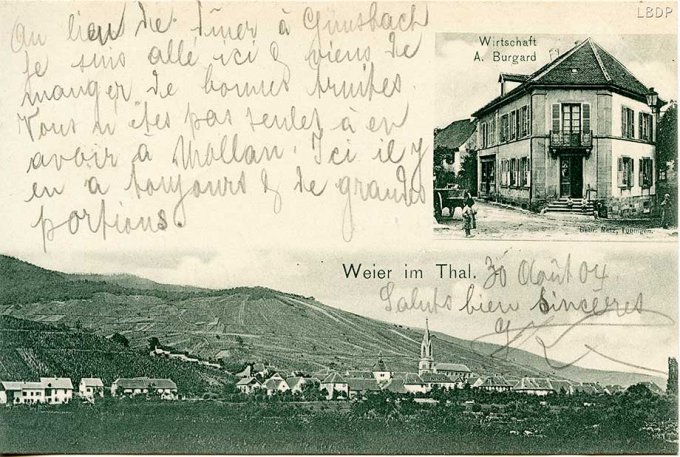 LBDP
Au lieu de dîner à Gunsbach
Je suis allé ici & viens de
manger de bonnes truites.
Vous n'êtes pas seules à en
avoir à Mollau. Ici il y
en a toujours & de grandes
portions.
Wirtschaft
A. Burgard
Gebr. Metz, Tübingen.
Weier im Thal.
30 Août 04.
Saluts bien sincères